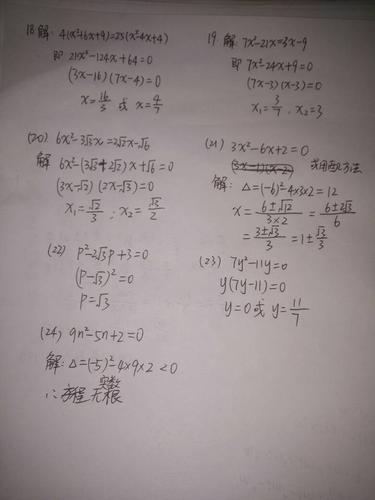 18. 解: 4(x²+6x+9)=25(x²-4x+4)
即 21x²-124x+64=0
(3x-16)(7x-4)=0
x=16/3 或 x=4/7
19. 解: 7x²-21x=3x-9
即 7x²-24x+9=0
(7x-3)(x-3)=0
x₁=3/7, x₂=3
(20) 6x²-3√3x=2√2x-√6
解 6x²-(3√3+2√2)x+√6=0
(3x-√2)(2x-√3)=0
x₁=√2/3; x₂=√3/2
(21) 3x²-6x+2=0
(3x-1)(x-2) 或用配方法
解: Δ=(-6)²-4×3×2=12
x=(6±√12)/(3×2)=(6±2√3)/6
=(3±√3)/3=1±√3/3
(22) p²-2√3p+3=0
(p-√3)²=0
p=√3
(23) 7y²-11y=0
y(7y-11)=0
y=0或 y=11/7
(24) 9n²-5n+2=0
解: Δ=(-5)²-4×9×2<0
∴方程无实数根